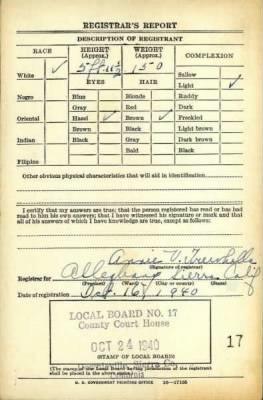 REGISTRAR'S REPORT
DESCRIPTION OF REGISTRANT
RACE HEIGHT (Approx.) WEIGHT (Approx.) COMPLEXION
White ✓ 5 ft 11½ 150 Sallow
EYES HAIR Light ✓
Negro Blue Blonde Ruddy
Gray Red Dark
Oriental Hazel ✓ Brown ✓ Freckled
Brown Black Light brown
Indian Black Gray Dark brown
Bald Black
Filipino
Other obvious physical characteristics that will aid in identification
I certify that my answers are true; that the person registered has read or has had
read to him his own answers; that I have witnessed his signature or mark and that
all of his answers of which I have knowledge are true, except as follows:
Annie V.
(Signature of registrar)
Registrar for Alleghany Sierra Calif
(Precinct) (Ward) (City or county) (State)
Date of registration Oct. 16, 1940
LOCAL BOARD NO. 17
County Court House
OCT 24 1940
17
STAMP OF LOCAL BOARD
Downieville Sierra Co.
California
(The stamp of the Local Board having jurisdiction of the registrant
shall be placed in the above space.)
U. S. GOVERNMENT PRINTING OFFICE 16—17105